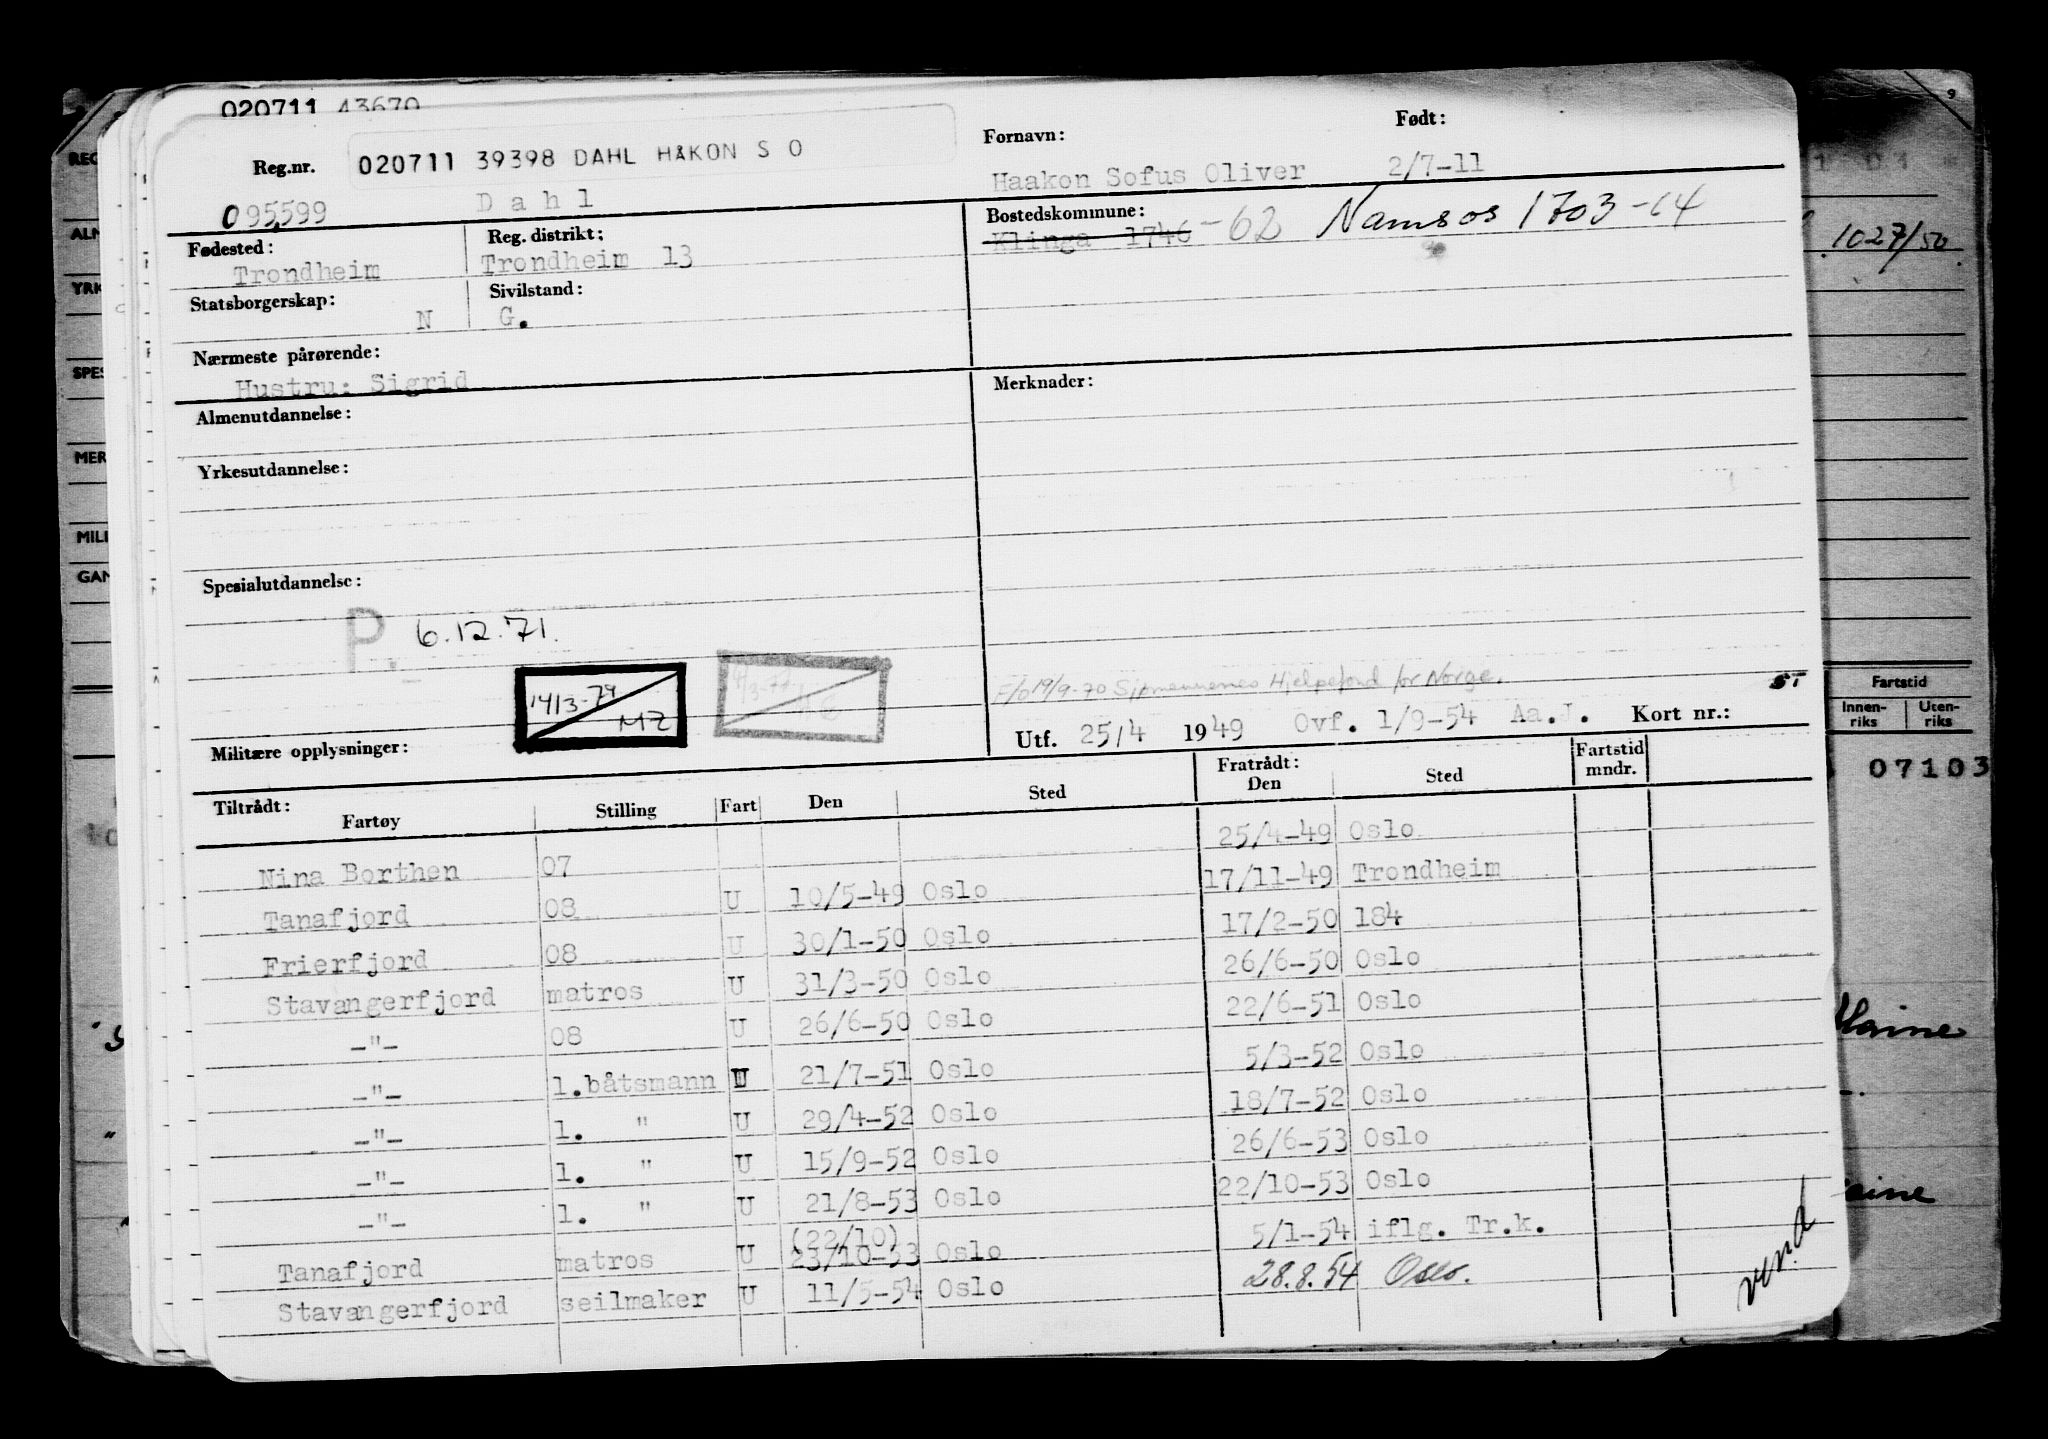 020711 43670
Reg.nr. 020711 39398 DAHL HÅKON S O Fornavn: Født:
095599 Dahl Haakon Sofus Oliver 2/7-11
Fødested: Reg. distrikt: Bostedskommune:
Trondheim Trondheim 13 Klinga 1746 -62 Namsos 1703-64
Statsborgerskap: Sivilstand:
N G.
Nærmeste pårørende:
Hustru: Sigrid Merknader:
Almenutdannelse:
Yrkesutdannelse:
Spesialutdannelse:
P. 6.12.71.
14/3-79 MZ
F/o 19/9-70 Sjømennenes Hjelpefond for Norge. ST
Militære opplysninger: Utf. 25/4 1949 Ovf. 1/9-54 Aa.J. Kort nr.:
Tiltrådt: Fratrådt: Fartstid
Fartøy Stilling Fart Den Sted Den Sted mndr.
Nina Borthen 07 25/4-49 Oslo
Tanafjord 08 U 10/5-49 Oslo 17/11-49 Trondheim
Frierfjord 08 U 30/1-50 Oslo 17/2-50 184
Stavangerfjord matros U 31/3-50 Oslo 26/6-50 Oslo
-"- 08 U 26/6-50 Oslo 22/6-51 Oslo
-"- 1.båtsmann U 21/7-51 Oslo 5/3-52 Oslo
-"- 1. " U 29/4-52 Oslo 18/7-52 Oslo
-"- 1. " U 15/9-52 Oslo 26/6-53 Oslo
-"- 1. " U 21/8-53 Oslo 22/10-53 Oslo
(22/10)
Tanafjord matros U 23/10-53 Oslo 5/1-54 iflg. Tr.k.
Stavangerfjord seilmaker U 11/5-54 Oslo 28.8.54 Oslo.
vend
REG
ALM
YRK
SPES
MER
MILI
GAN
9
1027/50
Fartstid
Innen-riks Uten-riks
07103